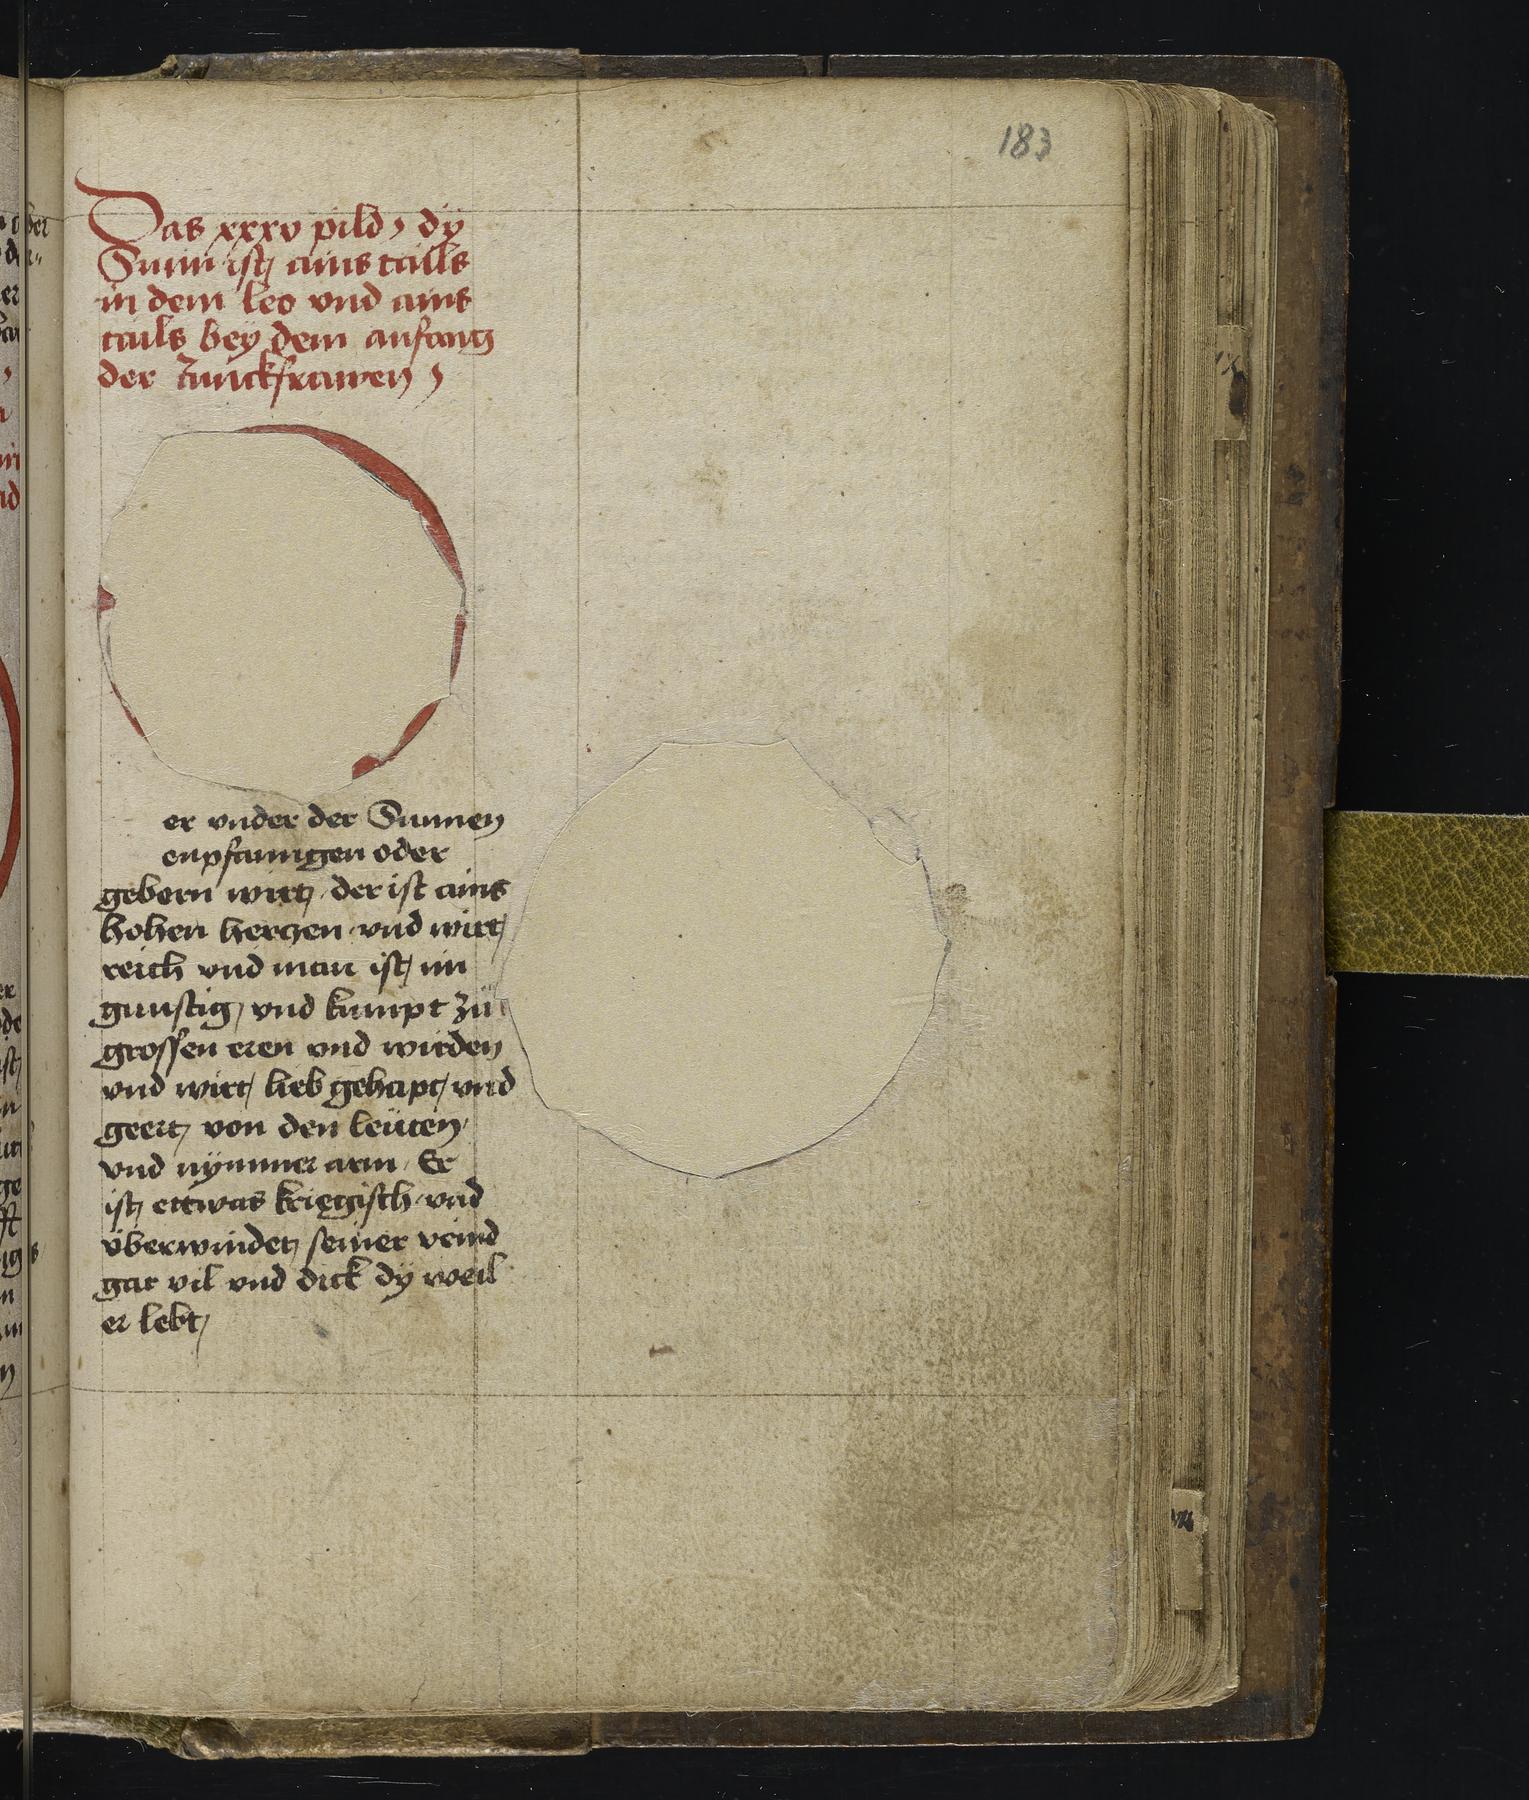 183
Das xxxv pild, dÿ
Sunn ist ains tails
in dem leo vnd ains
tails beÿ dem anfang
der Junckfrawen,
er vnder der Sunnen
enpfanngen oder
geborn wirt, der ist ains
hohen herczen vnd wirt
reich vnd man ist im
gunstig, vnd kumpt zü
grossen eren vnd wirden
vnd wirt lieb gehapt, vnd
geert, von den leüten,
vnd nÿmmer arm. Er
ist ettwas kriegisch vnd
überwindet seiner veind
gar vil vnd dick dÿ weil
er lebt,